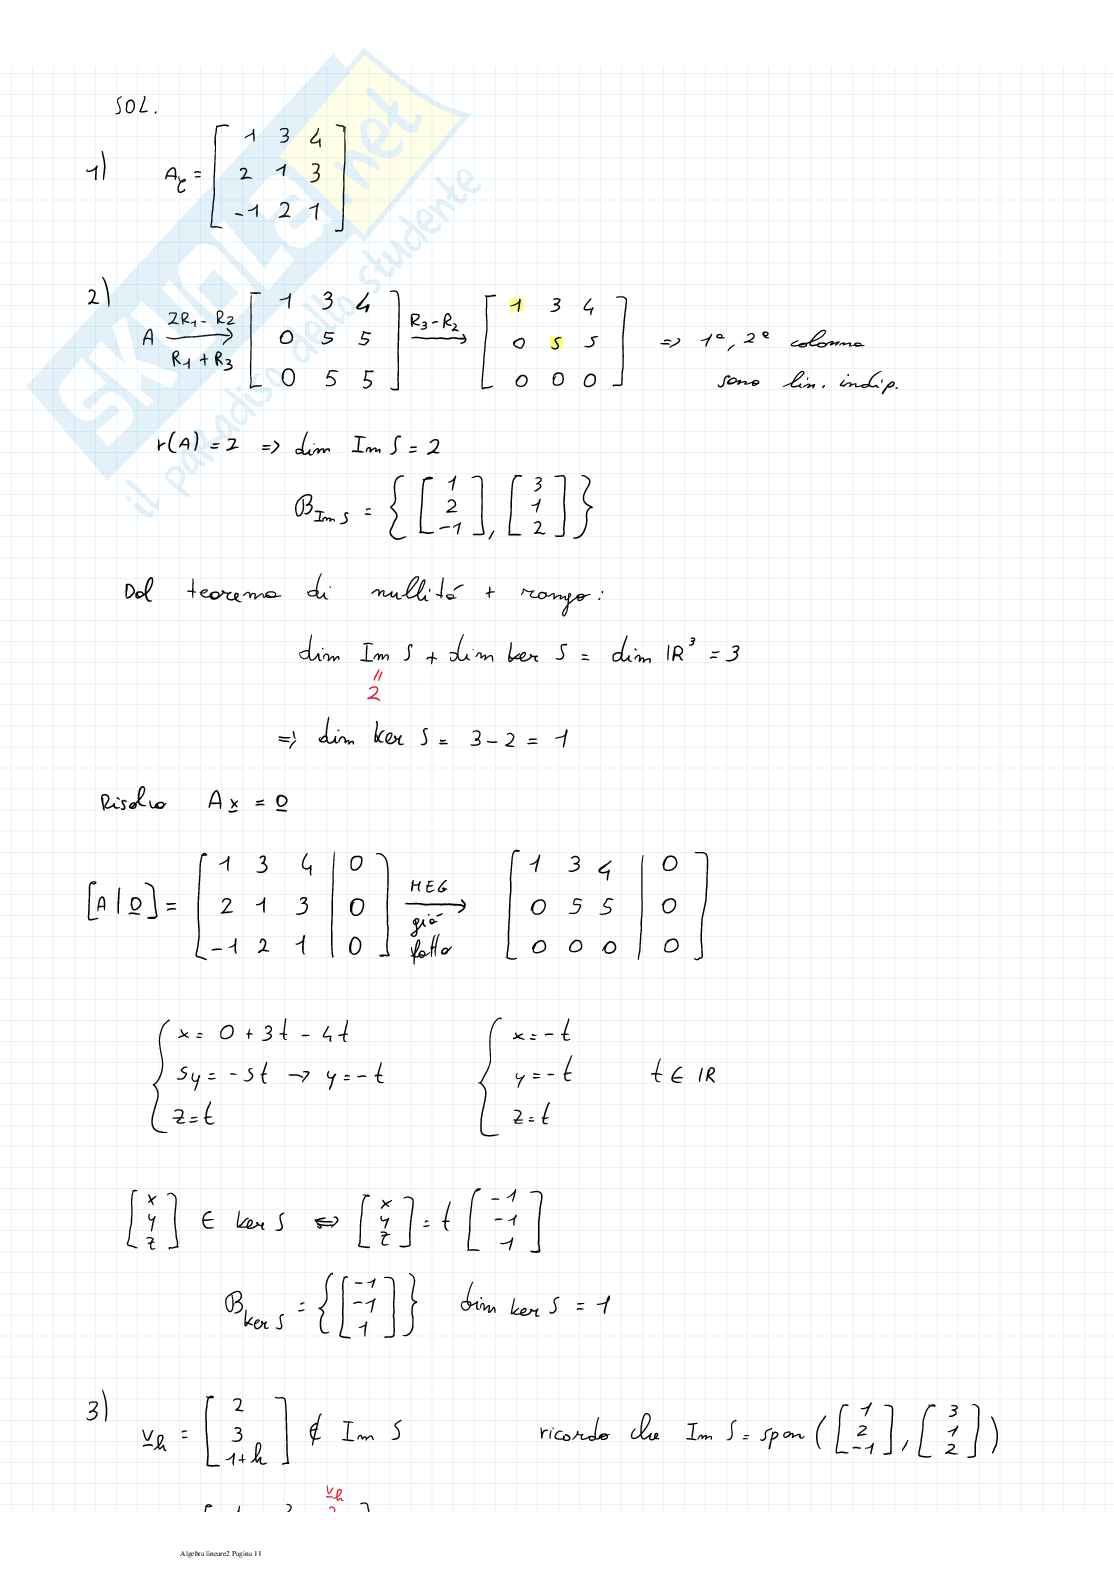 SOL.
1) A_C = [ 1 3 4
2 1 3
-1 2 1 ]
2) A 2R₁ - R₂ → R₁ + R₃ [ 1 3 4
0 5 5
0 5 5 ] R₃ - R₂ → [ 1 3 4
0 5 5
0 0 0 ] => 1ª, 2ª colonna
sono lin. indip.
r(A) = 2 => dim Im S = 2
B_Im S = { [ 1 2 -1 ], [ 3 1 2 ] }
Dal teorema di nullitá + rango:
dim Im S + dim ker S = dim IR³ = 3
"
2
=> dim ker S = 3 - 2 = 1
Risolvo A x = 0
[A | 0] = [ 1 3 4 | 0
2 1 3 | 0
-1 2 1 | 0 ] MEG → già fatto [ 1 3 4 | 0
0 5 5 | 0
0 0 0 | 0 ]
{ x = 0 + 3t - 4t { x = -t
5y = -5t → y = -t y = -t t ∈ IR
z = t z = t
[ x y z ] ∈ ker S ⇔ [ x y z ] = t [ -1 -1 1 ]
B_ker S = { [ -1 -1 1 ] } dim ker S = 1
3) v_h = [ 2 3 1+h ] ∉ Im S ricordo che Im S = span ( [ 1 2 -1 ], [ 3 1 2 ] )
v_h
SKUOLA.net
il paradiso dello studente
Algebra lineare2 Pagina 11